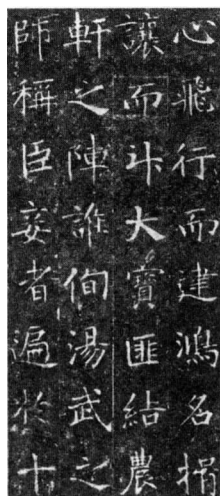 心飛行而建鴻名揖
讓而升大寶匪結農
軒之陣誰侚湯武之
師稱臣妾者遍於十